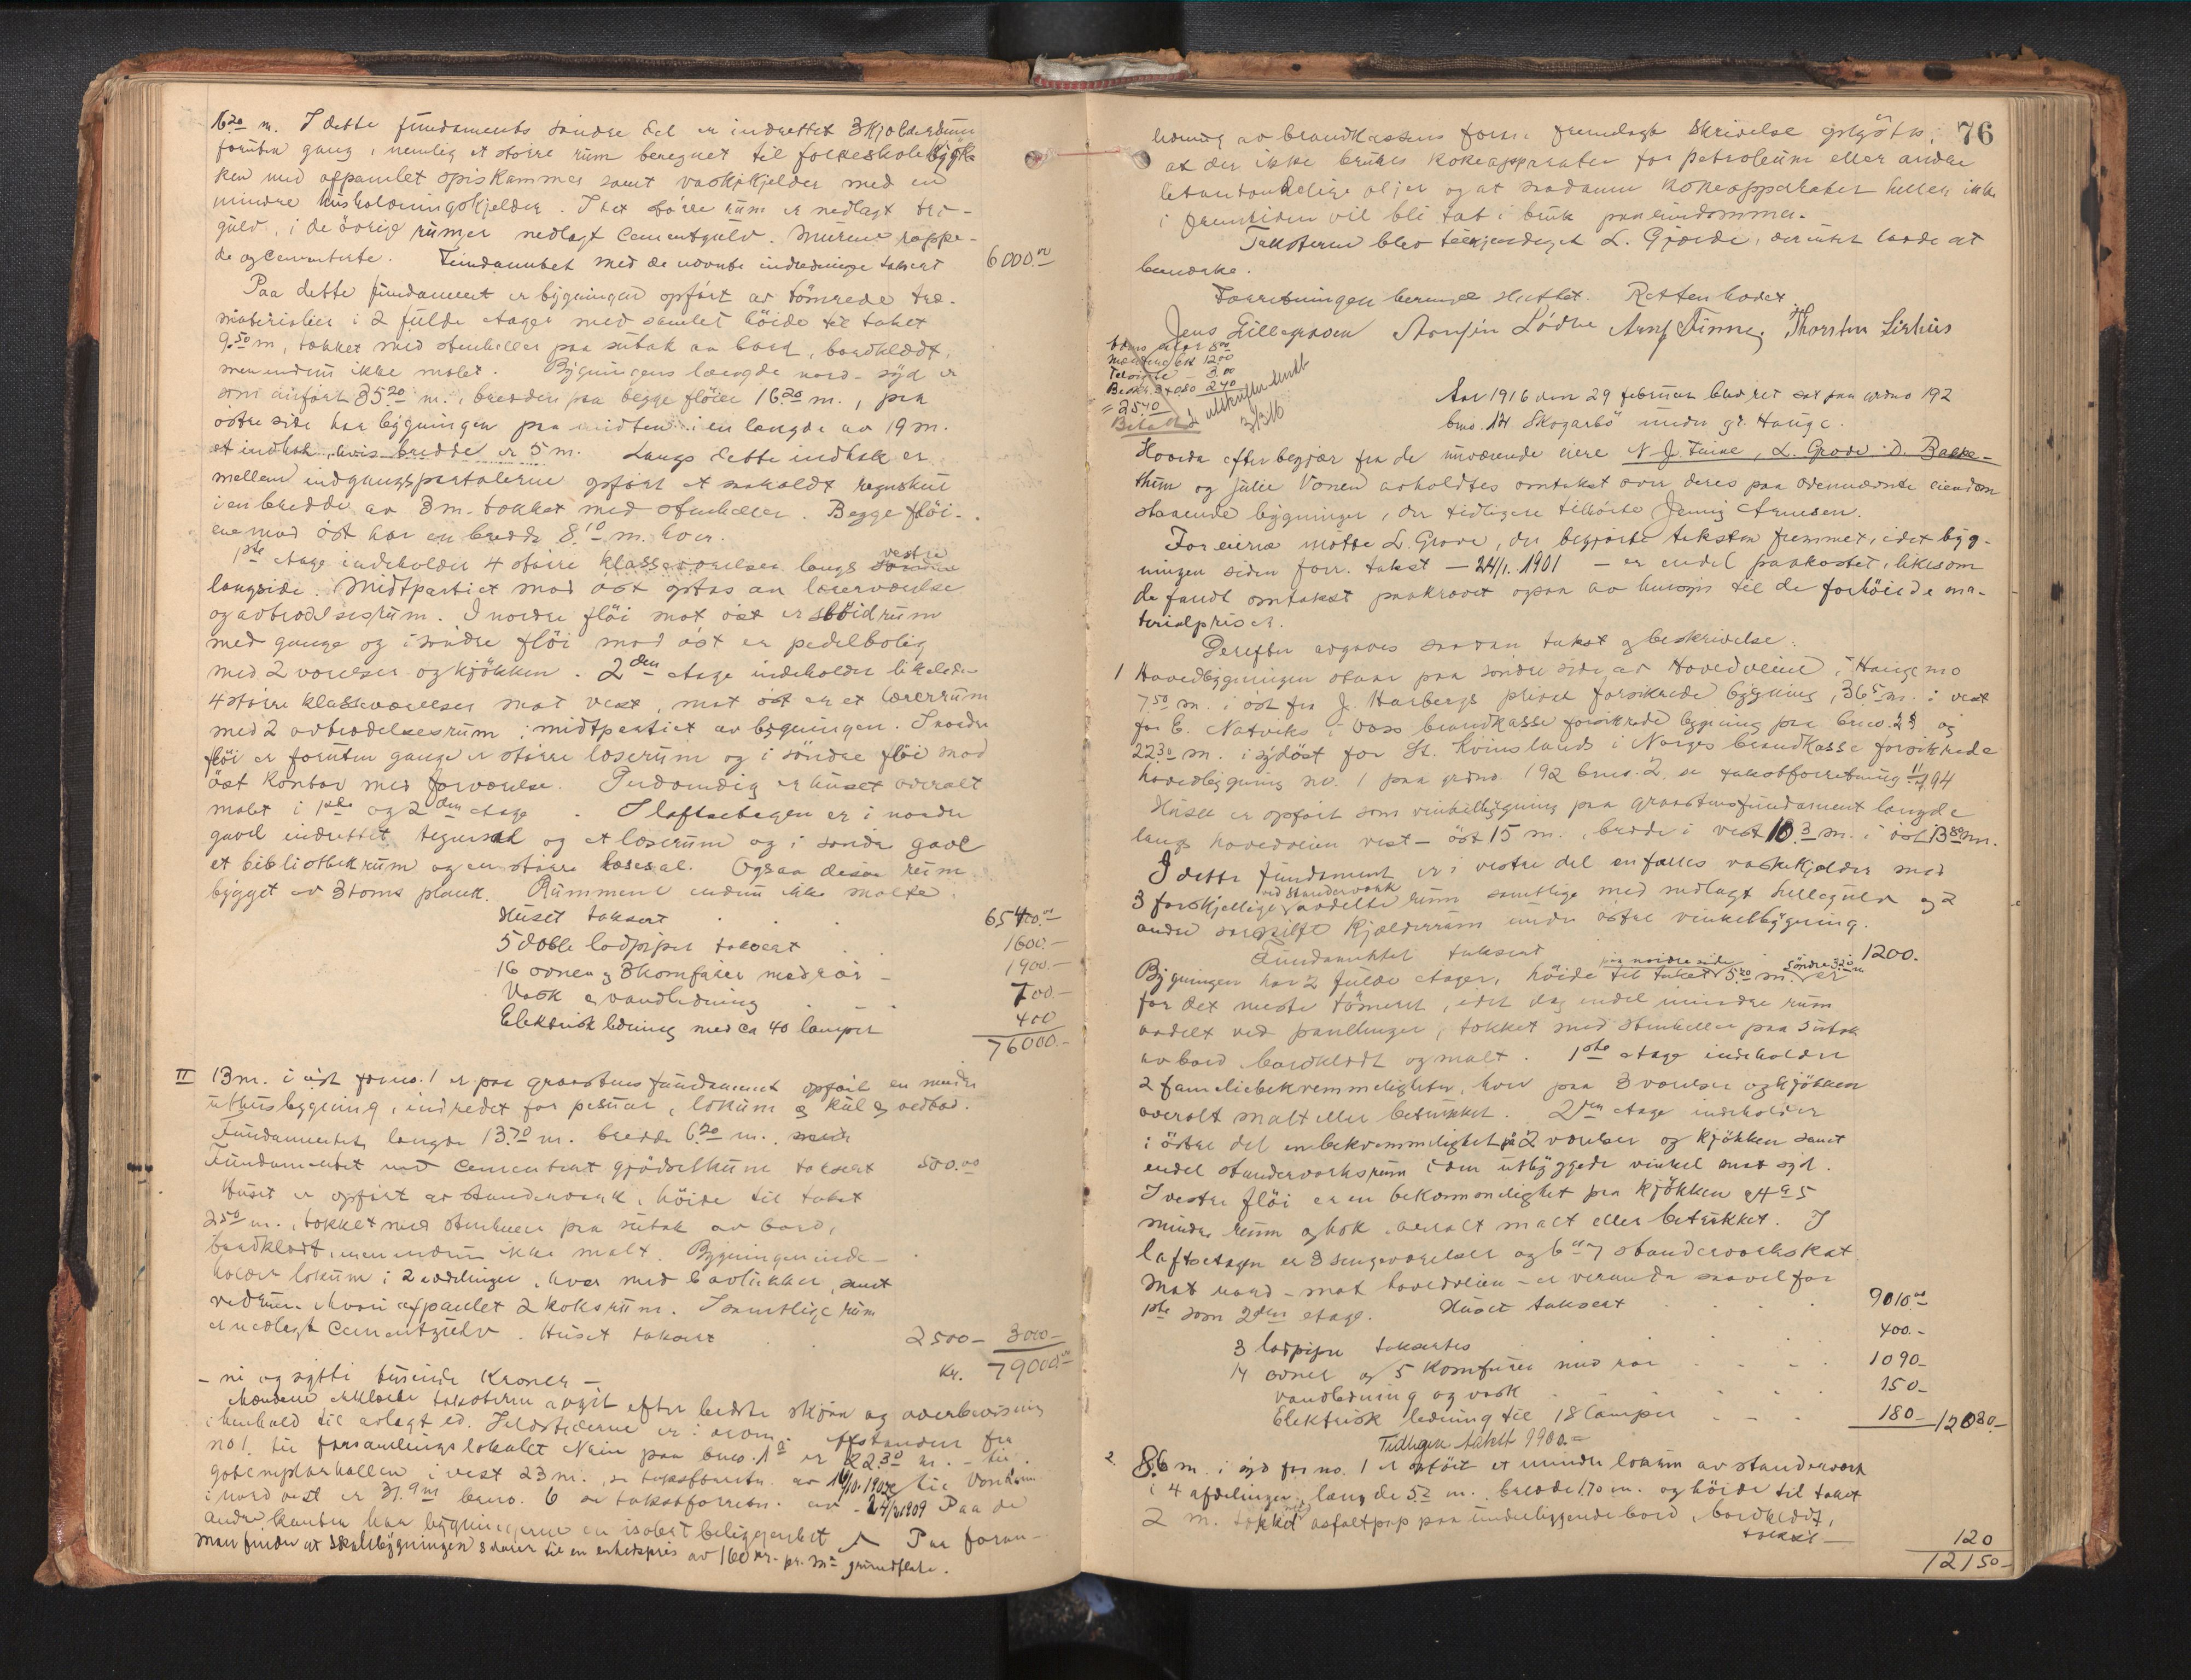 16.20 m. I dette fundaments søndre del er indrettet 3 kjelderrum
foruten gang, nemlig et større rum beregnet til folkeskolekjøk-
ken med afpanelet spiskammer samt vaskekjelder med en
mindre husholdningskjelder. I det større rum er nedlagt træ-
gulv, i de øvrige rummer nedlagt cementgulv. Murene rappe-
de og cementerte. Fundamentet med de nævnte indredninge taksert 6000.00
Paa dette fundament er bygningen opført av tømrede træ-
materialier i 2 fulde etager med samlet høide til taket
9.50 m, tækket med stenheller paa sutak av bord, bordklædt,
men endnu ikke malet. Bygningens længde nord-syd er
som anført 35.20 m., bredden paa begge fløier 16.20 m., paa
østre side har bygningen paa midten i en længde av 19 m.
et indhak, hvis bredde er 5 m. Langs dette indhak er
mellem indgangsportalerne opført et saakaldt regnskur
i en bredde av 3 m. tækket med stenheller. Begge fløi-
ene mod øst har en bredde 8.10 m. hver.
1ste etage indeholder 4 større klasseværelser langs vestre
langside. Midtpartiet mod øst optas av lærerværelse
og avtrædelsesrum. I nordre fløi mot øst er sløidrum
med gange og i søndre fløi mod øst er pedelbolig
med 2 værelser og kjøkken. 2den etage indeholder likeledes
4 større klasseværelser mot vest, mot øst er et lærerrum
med 2 avtrædelsesrum i midtpartiet av bygningen. I nordre
fløi er foruten gange et større læserum og i søndre fløi mod
øst kontor med forværelse. Indvendig er huset overalt
malet i 1ste og 2den etage. I loftsetagen er i nordre
gavl indrettet tegnesal og et læserum og i søndre gavl
et bibliothekrum og en større læsesal. Ogsaa disse rum
bygget av 3 toms plank. Rummene endnu ikke malte.
Huset taksert 65400.00
5 doble ladpiper taksert 1600.-
16 ovner og 3 komfurer med rør - 1900.-
Vask og vandledning 700.-
Elektrisk ledning med ca 40 lamper 400
76000.-
II 13 m. i øst for no. 1 er paa graastens fundament opført en mindre
uthusbygning, indredet for pesuar, lokum og kul og vedbod.
Fundamentets længde 13.70 m. bredde 6.20 m.
Fundamentet med cementert gjødselkum taksert 500.00
Huset er opført av standerverk, høide til taket
2.50 m., tækket med stenheller paa sutak av bord,
bordklædt, men endnu ikke malt. Bygningen inde-
holder lokum i 2 avdelinger, hver med 6 avlukker, samt
vedrum hvori afpanelet 2 koksrum. I samtlige rum
er nedlagt cementgulv. Huset taksert 2500- 3000-
Kr. 79000.00
- ni og sytti tusinde Kroner -
Mændene erklærte taksterne avgit efter bedste skjøn og overbevisning
i henhold til avlagt ed. Ildstederne er i orden. Afstanden fra
no 1. til forsamlingslokalet Nain paa bno. 1 er 22.30 m. - til
godtemplarhallen i vest 23 m.,
i nordvest er 31.9 m bno. 6 se takstforretn. av 24/2 1909 Paa de
andre kanter har bygningerne en isolert beliggenhet. Paa foran-
Man finder at skolebygningen svarer til en enhetspris av 160 kr. pr. m² grundflate.
76
ledning av brandkassens forrn fremlagte skrivelse oplystes,
at der ikke brukes kokeapparater for petroleum eller andre
letantændelige oljer og at saadanne kokeapparater heller ikke
i fremtiden vil bli tat i bruk paa eiendommen.
Taksterne blev tilkjendegit L. Gjerde, der intet havde at
bemerke.
Forretningen dermed sluttet. Retten hævet.
Jens Lillegraven Arnfin Lødve Arnf Finne, Thorstein Lirhus
8.00
Mændene 12.00
3.00
2.40
= 25.40
Betalt
3/3 16
Aar 1916 den 29 februar blev ret sat paa gdno 192
bno. 124 Skogarbø under gr. Hauge.
Hvorda efter begjær fra de nuværende eiere N. J. Finne, L. Grove, D. Bakke-
thun og Julie Vonen avholdtes omtakst over deres paa ovennævnte eiendom
staaende bygninger, der tidligere tilhørte Jenny Arnesen.
For eierne møtte L. Grove, der begjærte taksten fremmet, idet byg-
ningen siden forr. takst - 24/1. 1901 - er endel paakostet, likesom
de fandt omtakst paakrævet ogsaa av hensyn til de forhøiede ma-
terialpriser.
Derefter avgaves saadan takst og beskrivelse:
1 Hovedbygningen staar paa søndre side av Hovedveien i Haugemo
7.50 m. i øst fra J. Harbergs privat forsikrede bygning, 36.5 m. i vest
for E. Natviks i Voss brandkasse forsikrede bygning paa bno. 28 og
22.30 m. i sydøst for St. Kvinslands i Norges brandkasse forsikrede
hovedbygning no. 1 paa grdno. 192 bno. 2, se takstforretning
Huset er opført som vinkelbygning paa graastensfundament længde
langs hovedveien vest-øst 15 m., bredde i vest 10.3 m. i øst 13.80 m.
I dette fundament er i vestre del en fælles vaskekjelder med
3 forskjellige ved standerverk avdelte rum samtlige med nedlagt hellegulv og 2
andre særskilte kjelderrum under østre vinkelbygning.
Fundamentet taksert 1200.
Bygningen har 2 fulde etager, høide til taket paa nordre side 5.20 m. søndre 3.20 m er
for det meste tømret, idet dog endel mindre rum
avdelt ved panelinger, tækket med stenheller paa sutak
av bord, bordklædt og malt. 1ste etage indeholder
2 familiebekvemmeligheter, hver paa 3 værelser og kjøkken
overalt malt eller betrukket. 2den etage indeholder
i østre del en bekvemmelighet på 2 værelser og kjøkken samt
endel standerverksrum i den utbyggede vinkel mot syd.
I vestre fløi er en bekvemmelighet paa kjøkken og 4 a 5
mindre rum og kok, overalt malt eller betrukket. I
loftsetagen er 3 sengeværelser og 6 a 7 standerverkskot.
Mot nord - mot hovedveien - er veranda saavel for
1ste som 2den etage. Huset taksert 9010.00
3 ladpiper taksertes 400.-
14 ovner og 5 komfurer med rør 1090-
vandledning og vask 150-
Elektrisk ledning til 18 lamper 180- 12030.-
Tidligere takst 9900.-
2. 8.6 m. i syd for no. 1 er opført et mindre lokum av standerverk
i 4 afdelinger, længde 5.2 m. bredde 1.70 m. og høide til taket
2 m. tækket med asfaltpap paa underliggende bord, bordklædt,
takst - 120
12150-